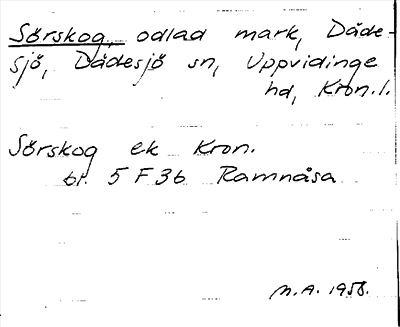 Sörskog, odlad mark, Däde-
sjö, Dädesjö sn, Uppvidinge
hd, Kron. l.
Sörskog ek Kron.
bl. 5 F 3b Ramnåsa
M.A. 1958.